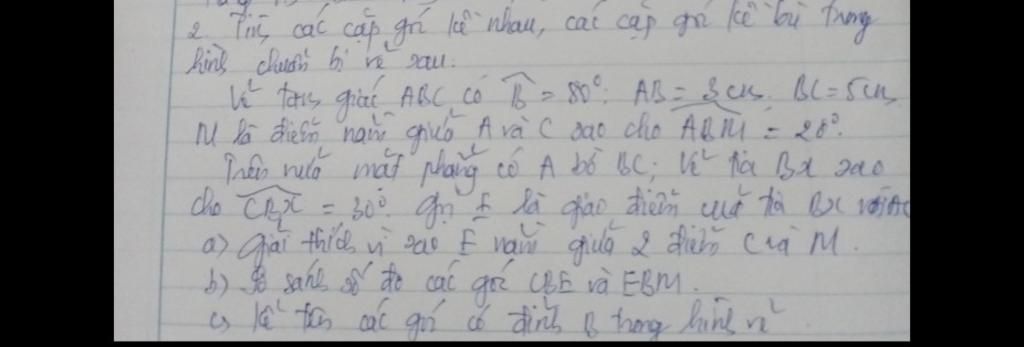 2. Tìm các cặp góc kề nhau, các cặp góc kề bù trong
hình chuẩn bị vẽ sau.
Vẽ tam giác ABC có B̂ = 80°. AB = 3cm. BC = 5cm
M là điểm nằm giữa A và C sao cho ABM = 20°.
Trên nửa mặt phẳng có A bờ BC, vẽ tia Bx sao
cho CBx = 30°. Gọi E là giao điểm của tia Bx với AC
a) giải thích vì sao E nằm giữa 2 điểm C và M.
b) So sánh số đo các góc CBE và EBM.
c) Kể tên các góc có đỉnh B trong hình vẽ